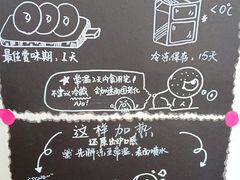 <0℃
最佳赏味期，2天
冷冻保存，15天
常温2天内食用完!
不建议冷藏 会加速面团老化
No!
这样加热
还原出炉口感
先解冻至常温 表面喷水